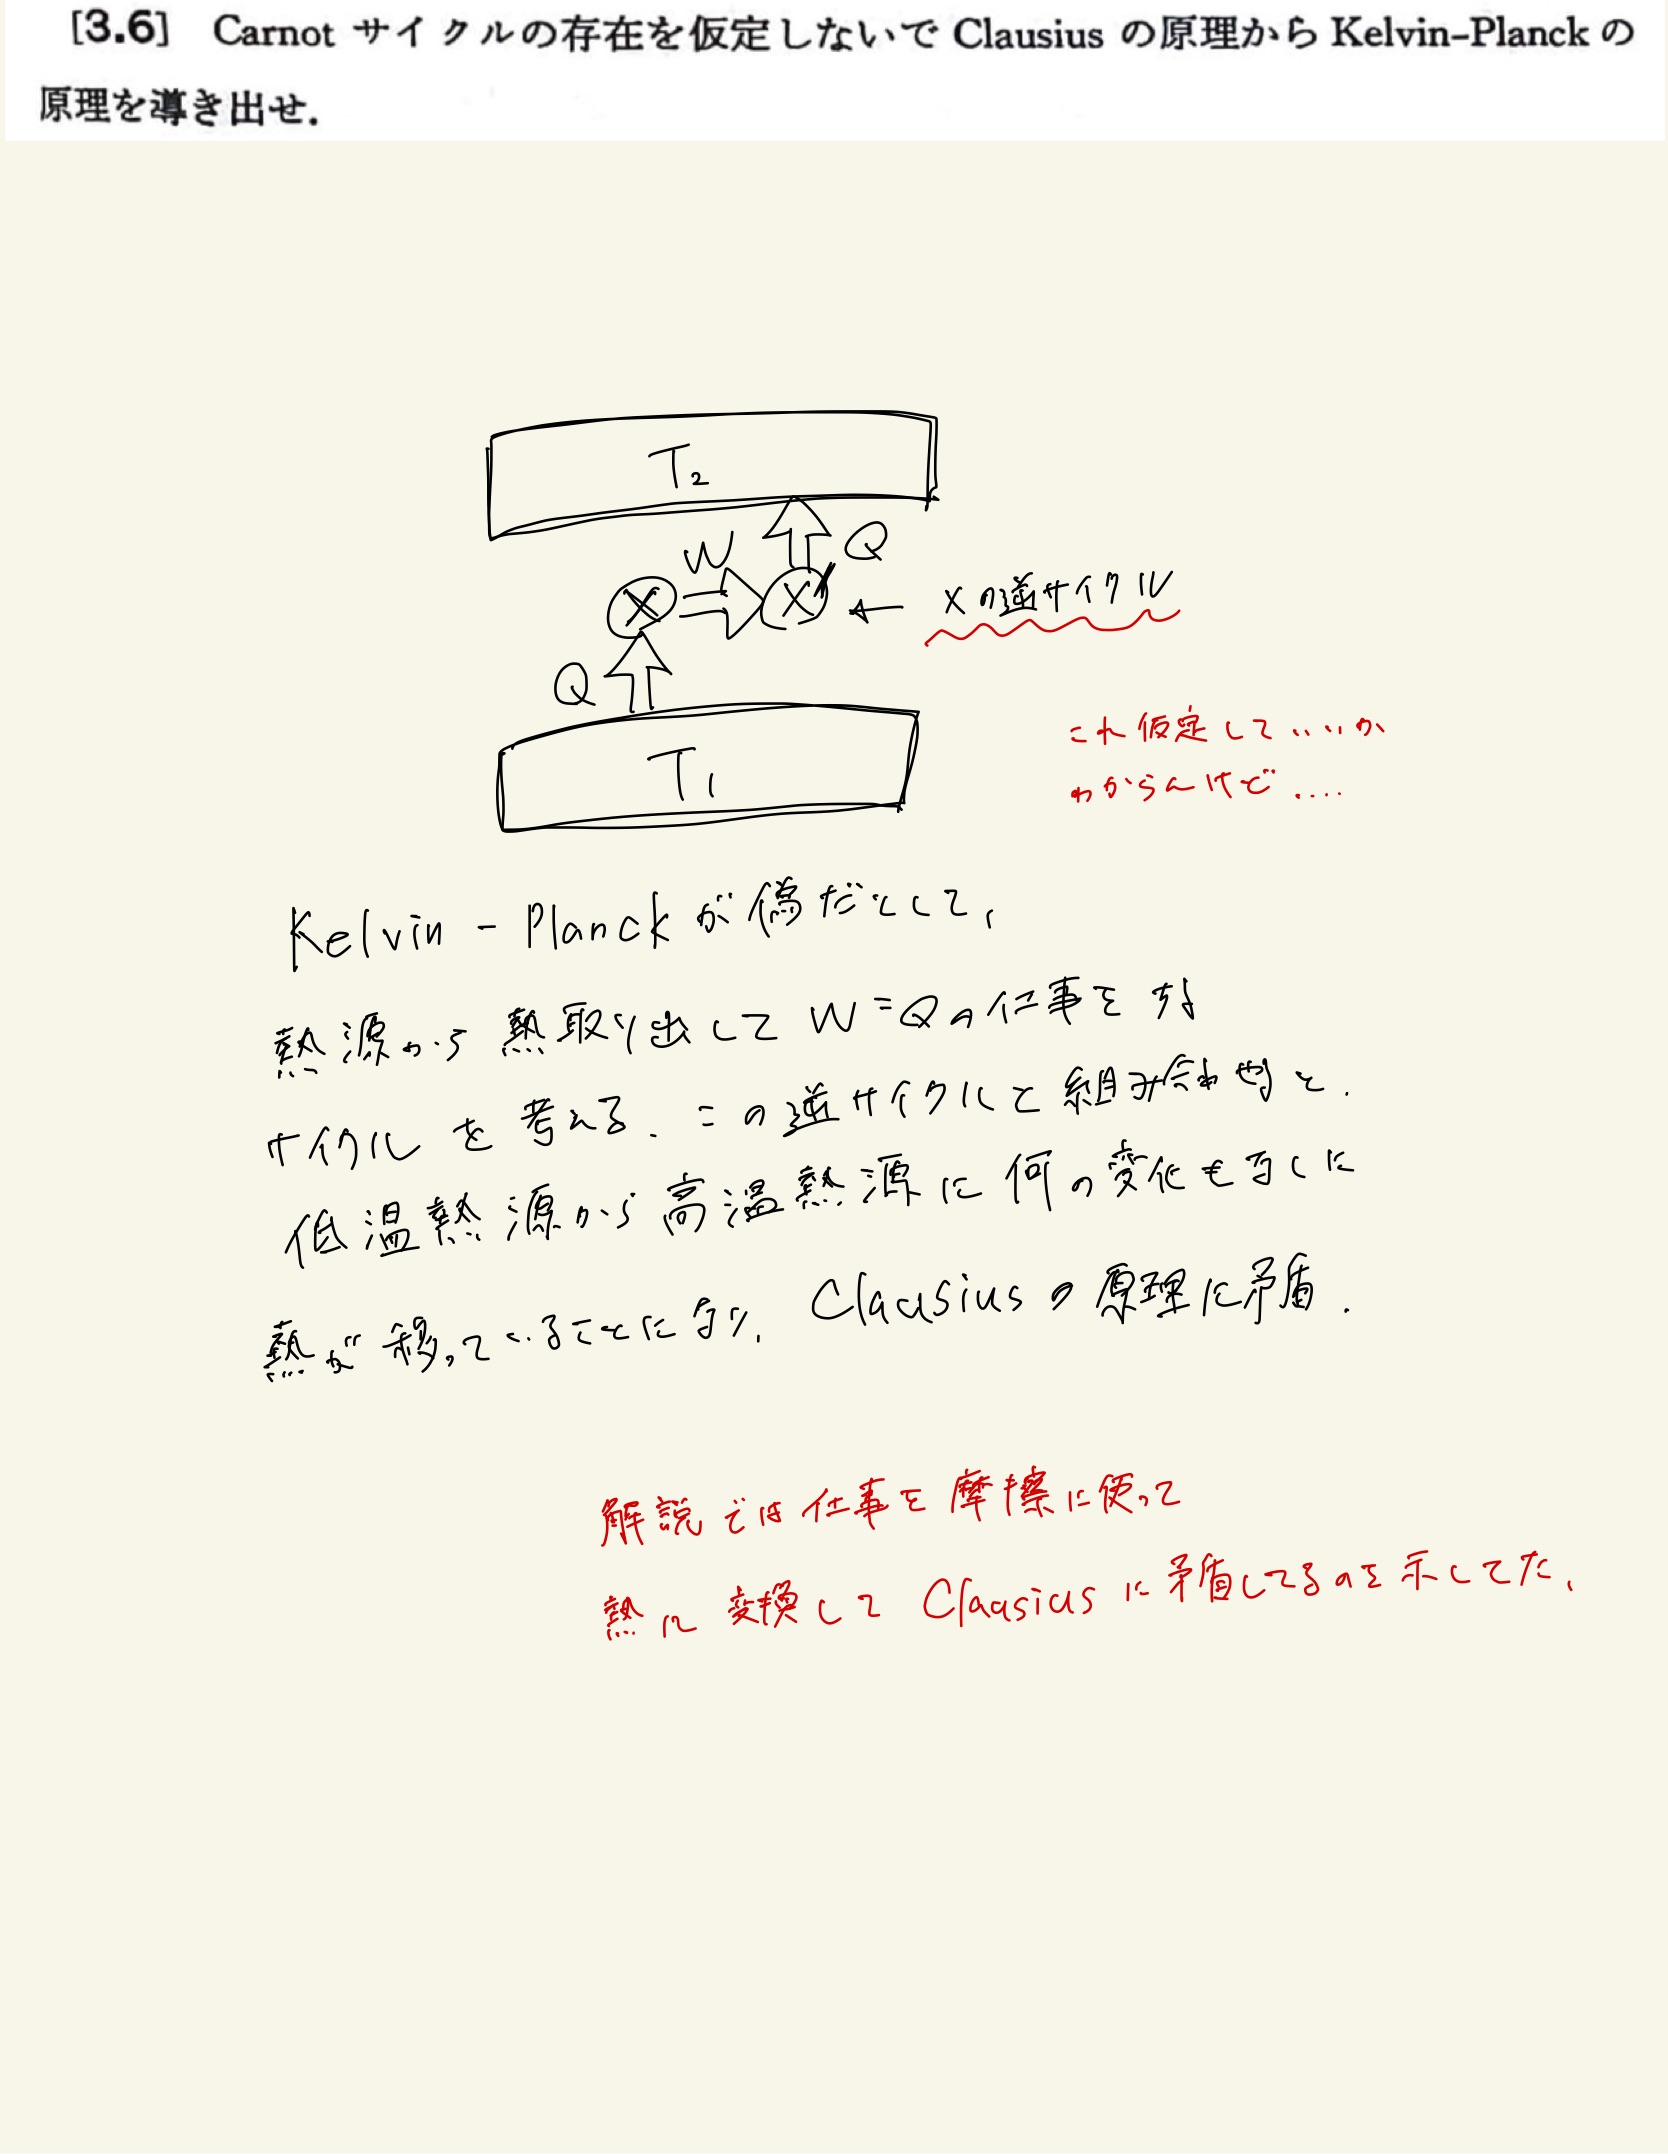 [3.6] Carnot サイクルの存在を仮定しないで Clausius の原理から Kelvin–Planck の
原理を導き出せ.
T₂
W
Q
X
X'
← Xの逆サイクル
Q
これ仮定していいか
わからんけど....
T₁
Kelvin - Planckが偽だとして、
熱源から熱取り出して W=Qの仕事をする
サイクルを考える. この逆サイクルと組み合わせると.
低温熱源から高温熱源に何の変化もなしに
熱が移っていることになり, Clausiusの原理に矛盾.
解説では仕事を摩擦に使って
熱に変換して Clausiusに矛盾してるのを示してた、